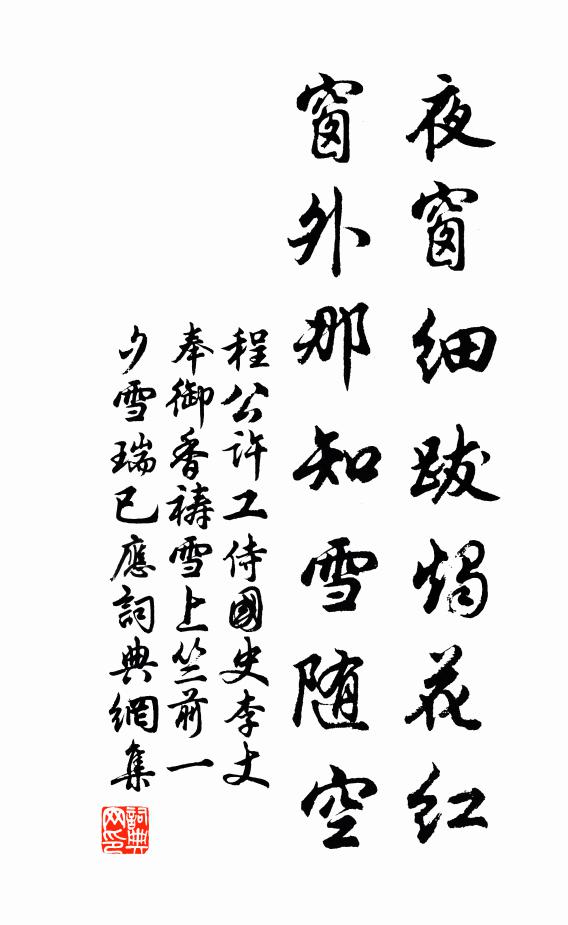 夜窗细跋燭花红
窗外那知雪随空
程公許工侍國史李丈
奉御香禱雪上竺前一
夕雪瑞已應詞典網集
詞典
网印